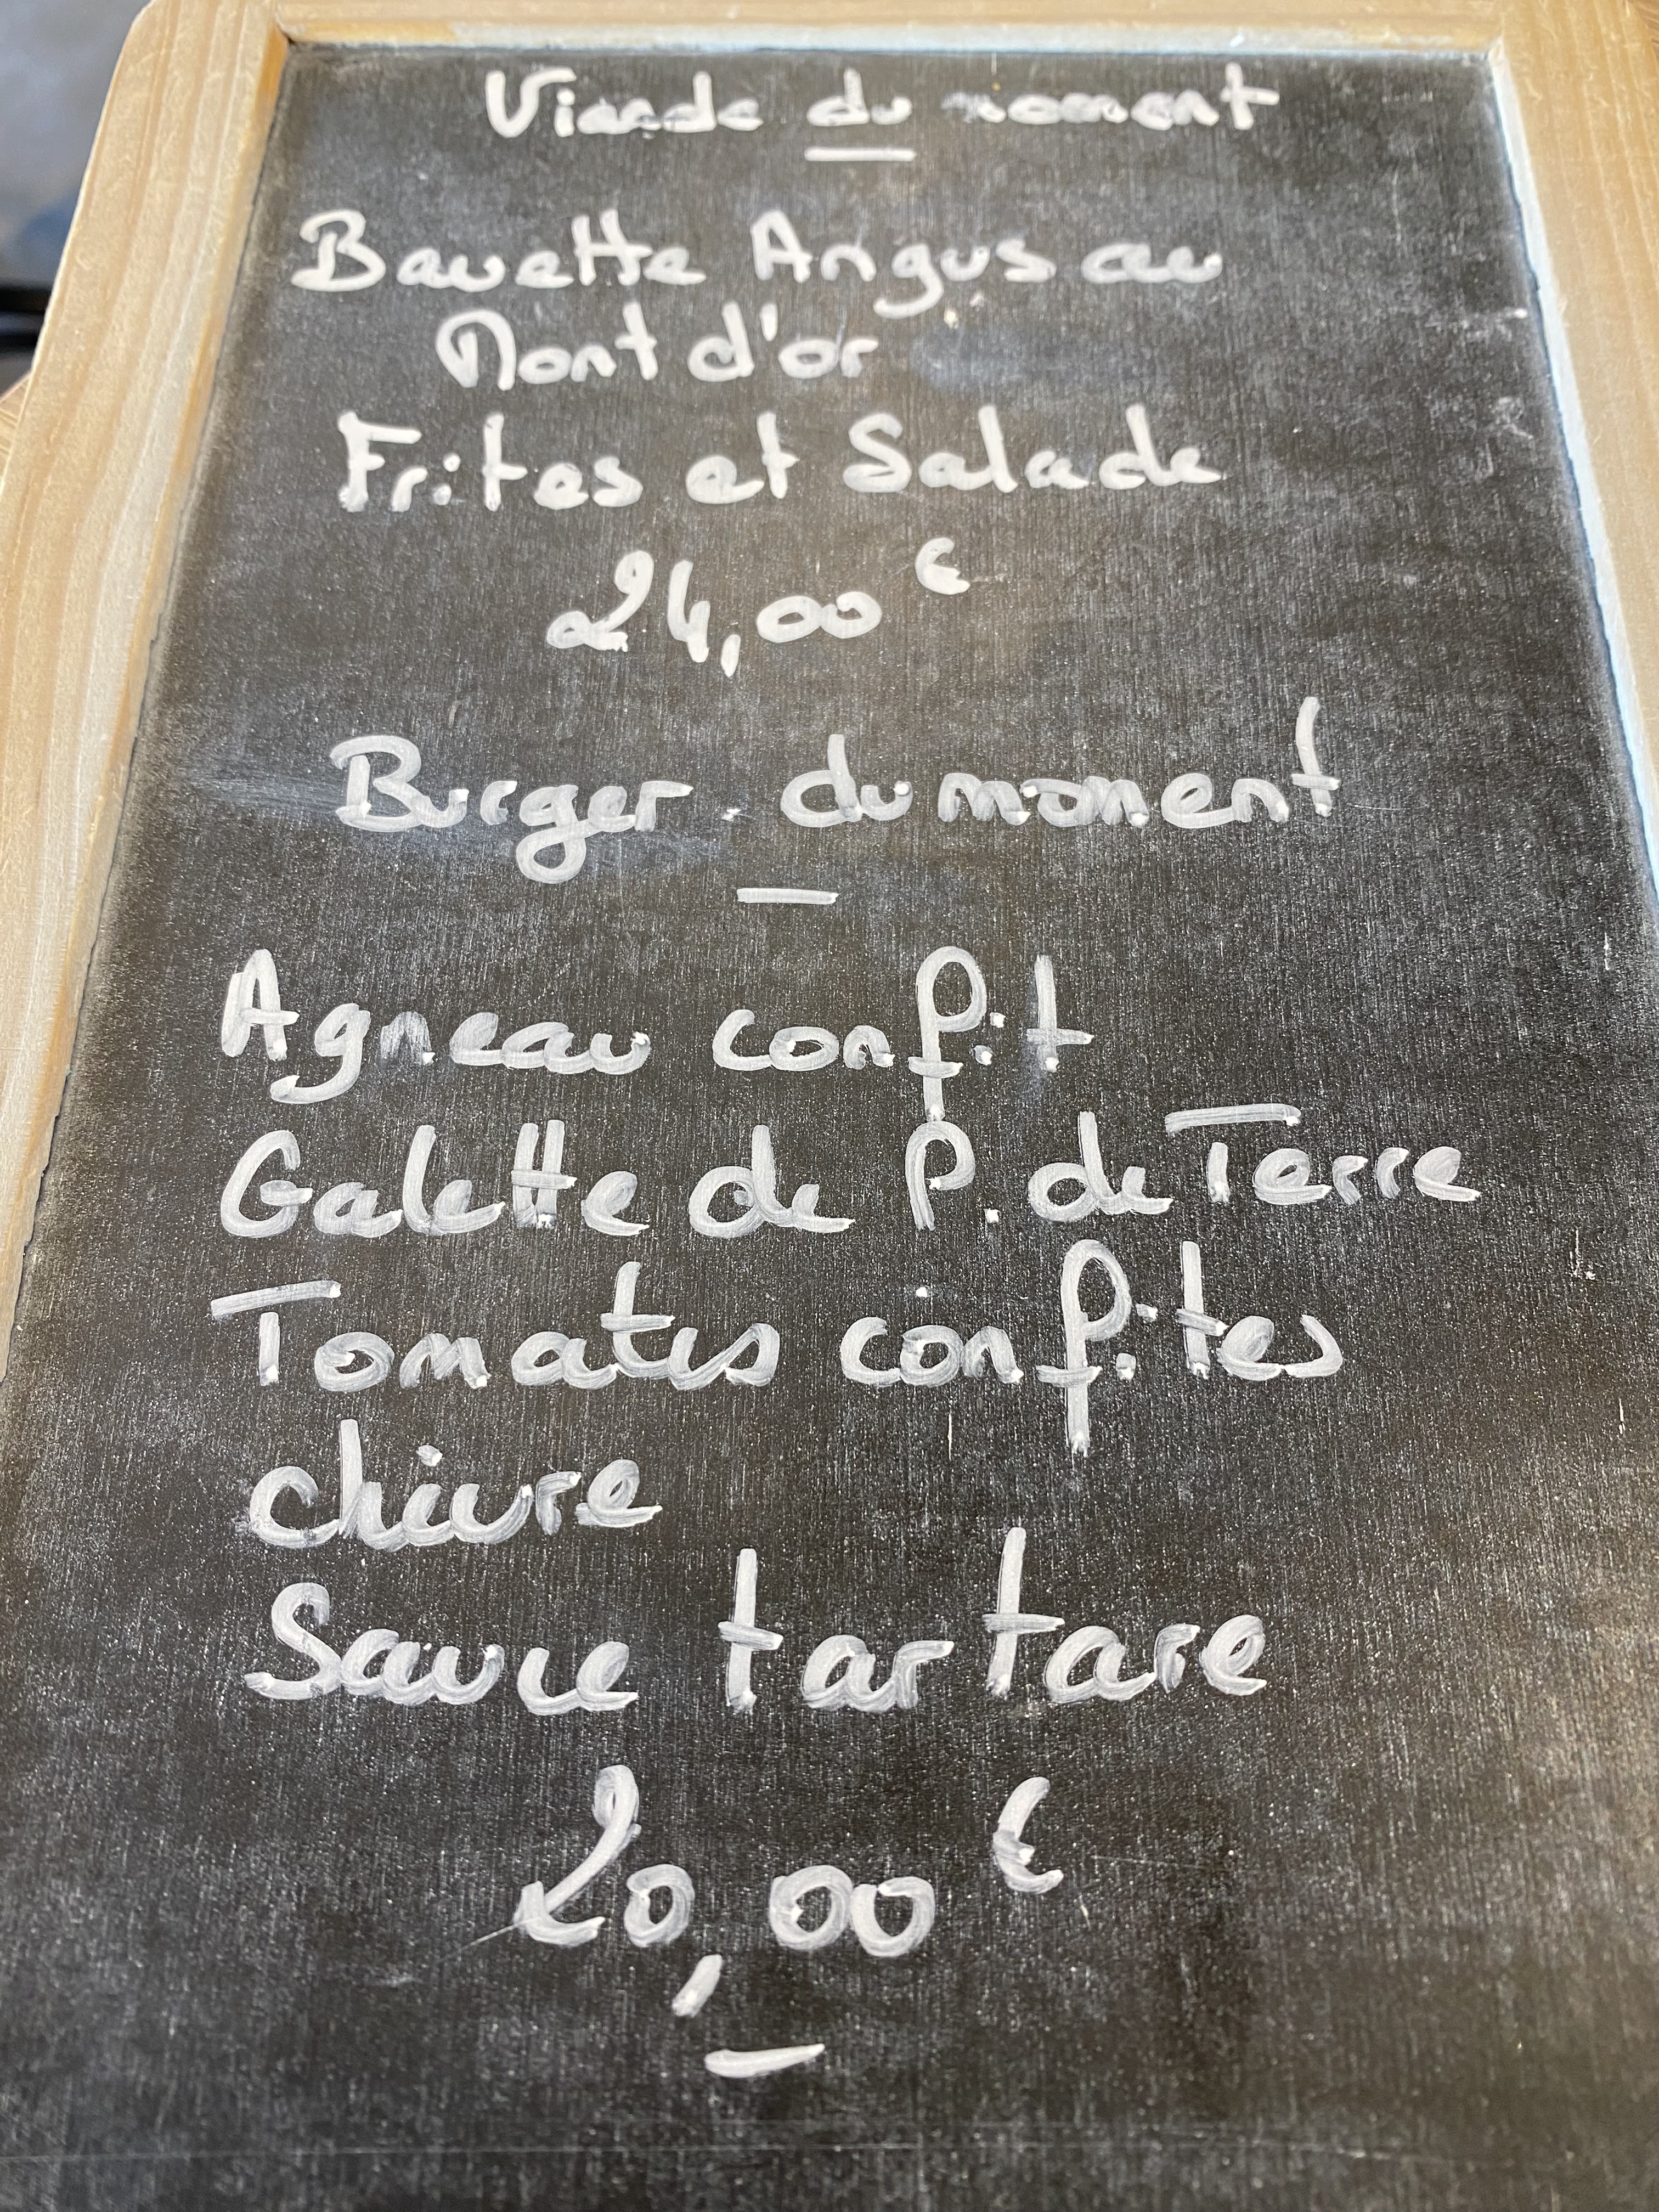 Viande du moment
Bavette Angus au
Mont d'or
Frites et Salade
24,00 €
Burger du moment
Agneau confit
Galette de P. de Terre
Tomates confites
chèvre
Sauce tartare
20,00 €